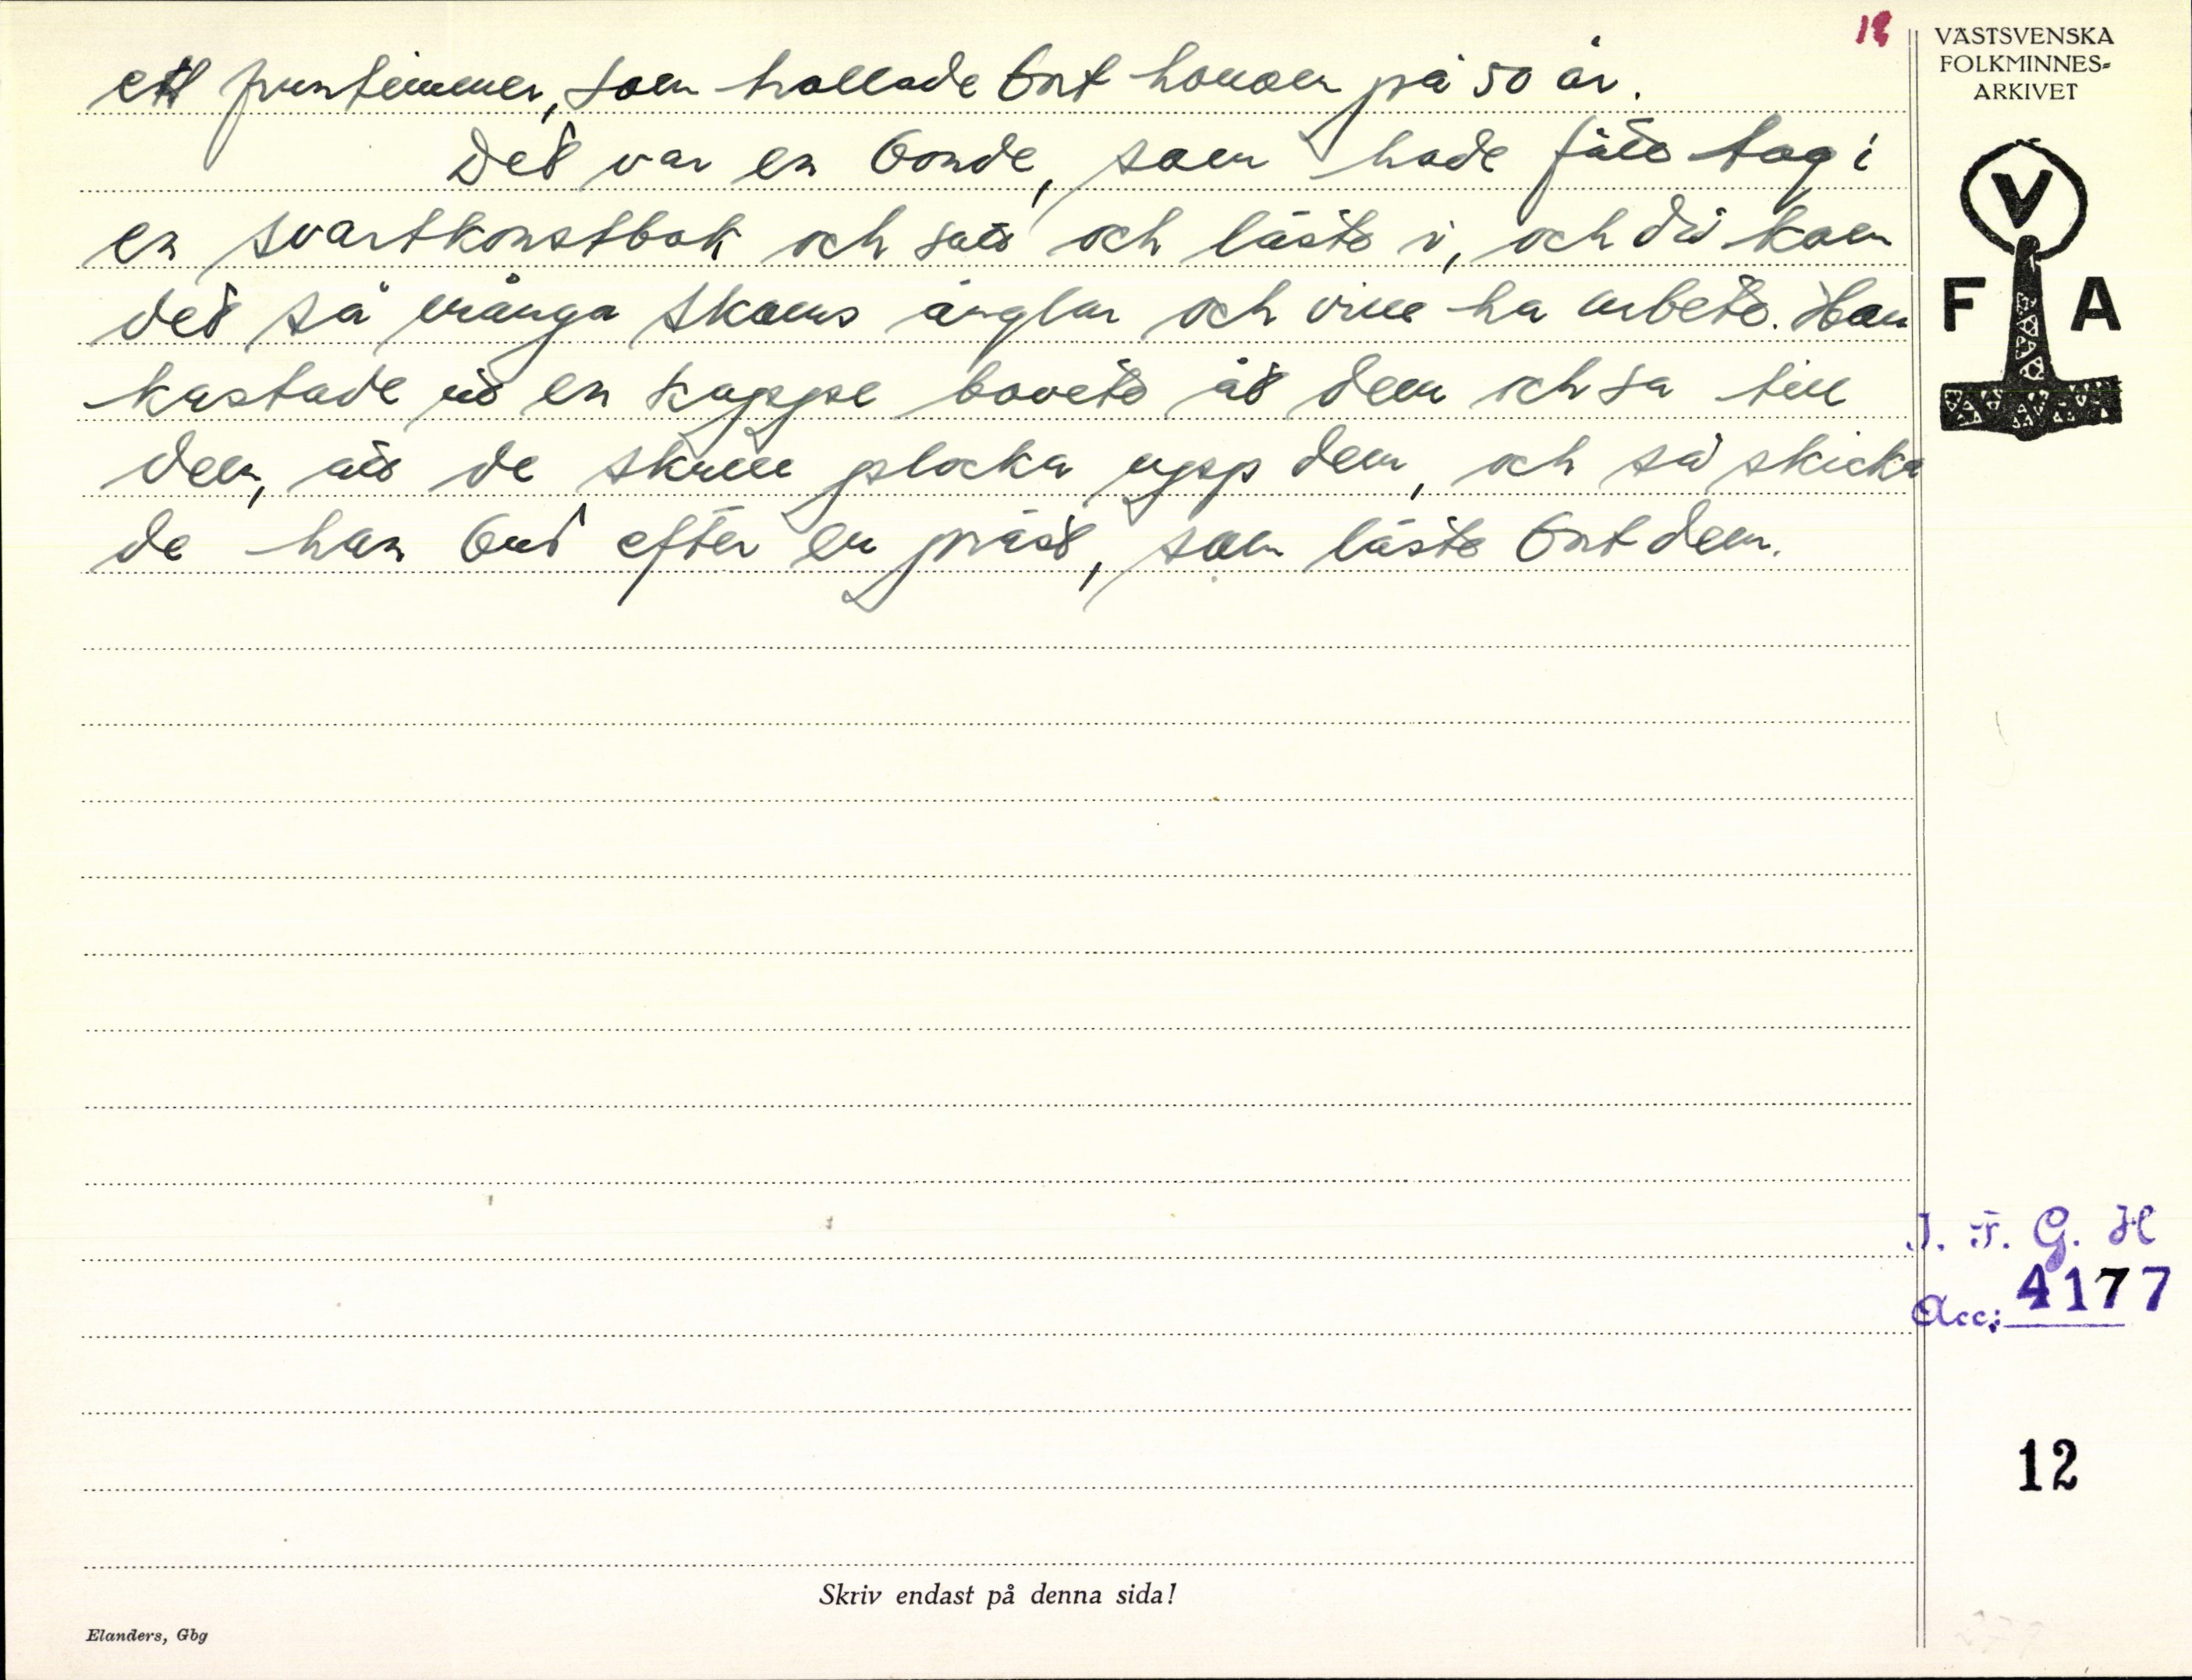 18
VÄSTSVENSKA
FOLKMINNES-
ARKIVET
ett fruntimmer, som trollade bort honom på 50 år.
Det var en bonde, som hade fått tag i
en svartkonstbok och satt och läste i, och då kom
det så många skams änglar och ville ha arbete. Han
kastade ut en kappe bovete åt dem och sa till
dem, att de skulle plocka upp dem, och så skicka
de han bud efter en präst, som läste bort dem.
V
F A
I. F. G. H
Acc: 4177
12
Skriv endast på denna sida!
Elanders, Gbg